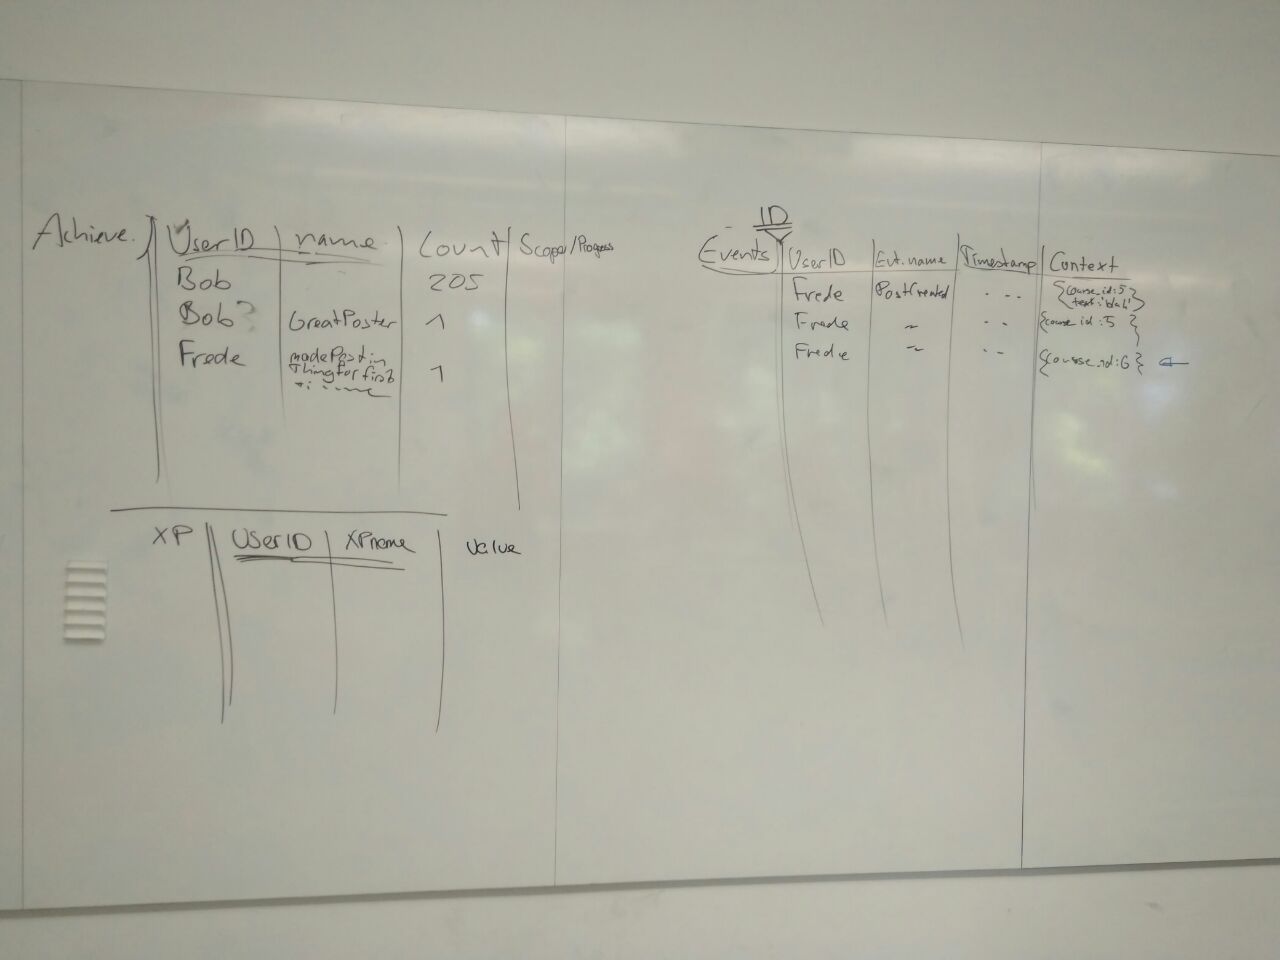 Achieve. UserID name Count Scope/Progress
Bob 205
Bob? GreatPoster 1
Frede madePost in
Thing for first 1
XP UserID XPname Value
ID
Events UserID Evt.name Timestamp Context
Frede PostCreated . . . {course_id:5
text:'blah'}
Frede ~ . . {course_id:5 }
Fredie ~ . . {course_id:6}